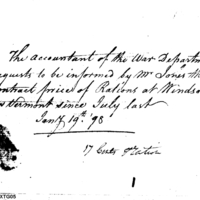 The accountant of the War Departm
quests to be informed by Mr Jones th
contract price of Rations at Windso
Vermont since July last
Jany 19th '98
17 Cents Ration